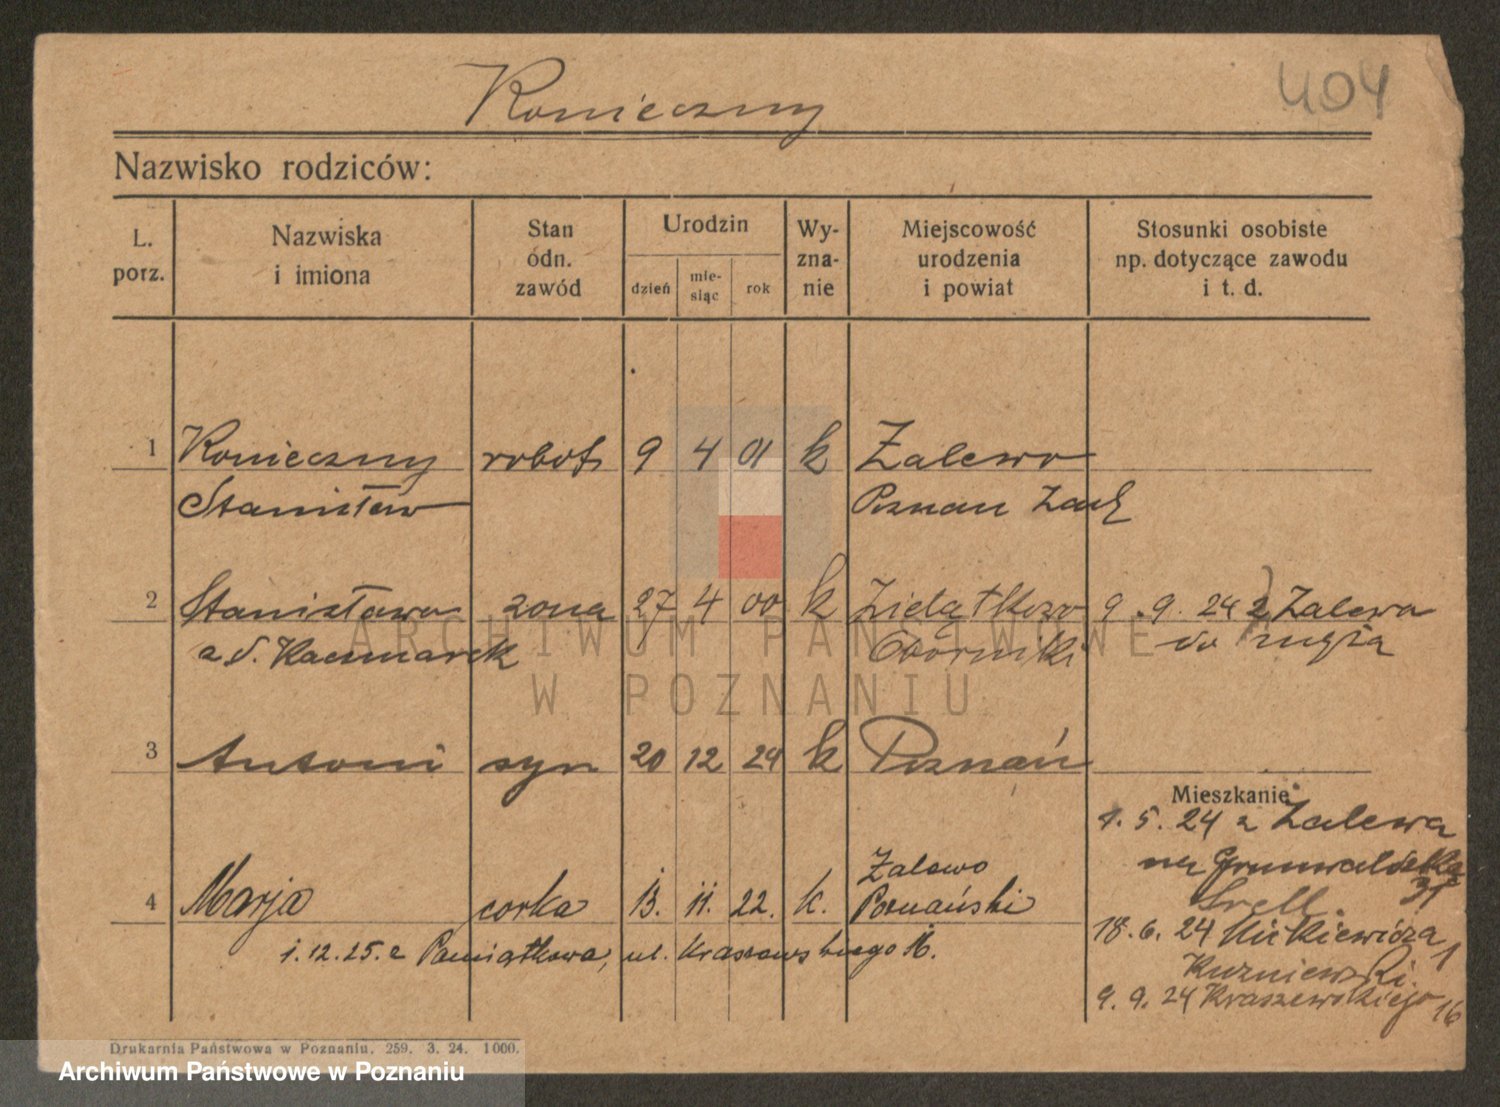 404
Konieczny
Nazwisko rodziców:
L. porz.
Nazwiska i imiona
Stan odn. zawód
Urodzin
dzień
mie-siąc
rok
Wy-zna-nie
Miejscowość urodzenia i powiat
Stosunki osobiste np. dotyczące zawodu i t. d.
1 Konieczny robot 9 4 01 k Zalewo
Stanisław Poznan Zach
2 Stanisława żona 27 4 00 k 9. 9. 24 z Zalewa
z d. Kaczmarek Oborniki do męża
3 Antoni syn 20 12 24 k Poznań
Mieszkanie
1. 5. 24 z Zalewa
Grunwaldzka
31
4 Marja corka 13. 11. 22. k. Zalewo
Poznański
18. 6. 24 Mickiewicza 1
1. 12. 25. z Pamiątkowa, ul. Kraszewskiego 16.
Kuzniewski.
9. 9. 24 Kraszewskiego 16
Drukarnia Państwowa w Poznaniu. 259. 3. 24. 1000.
ARCHIWUM PAŃSTWOWE
W POZNANIU
Archiwum Państwowe w Poznaniu